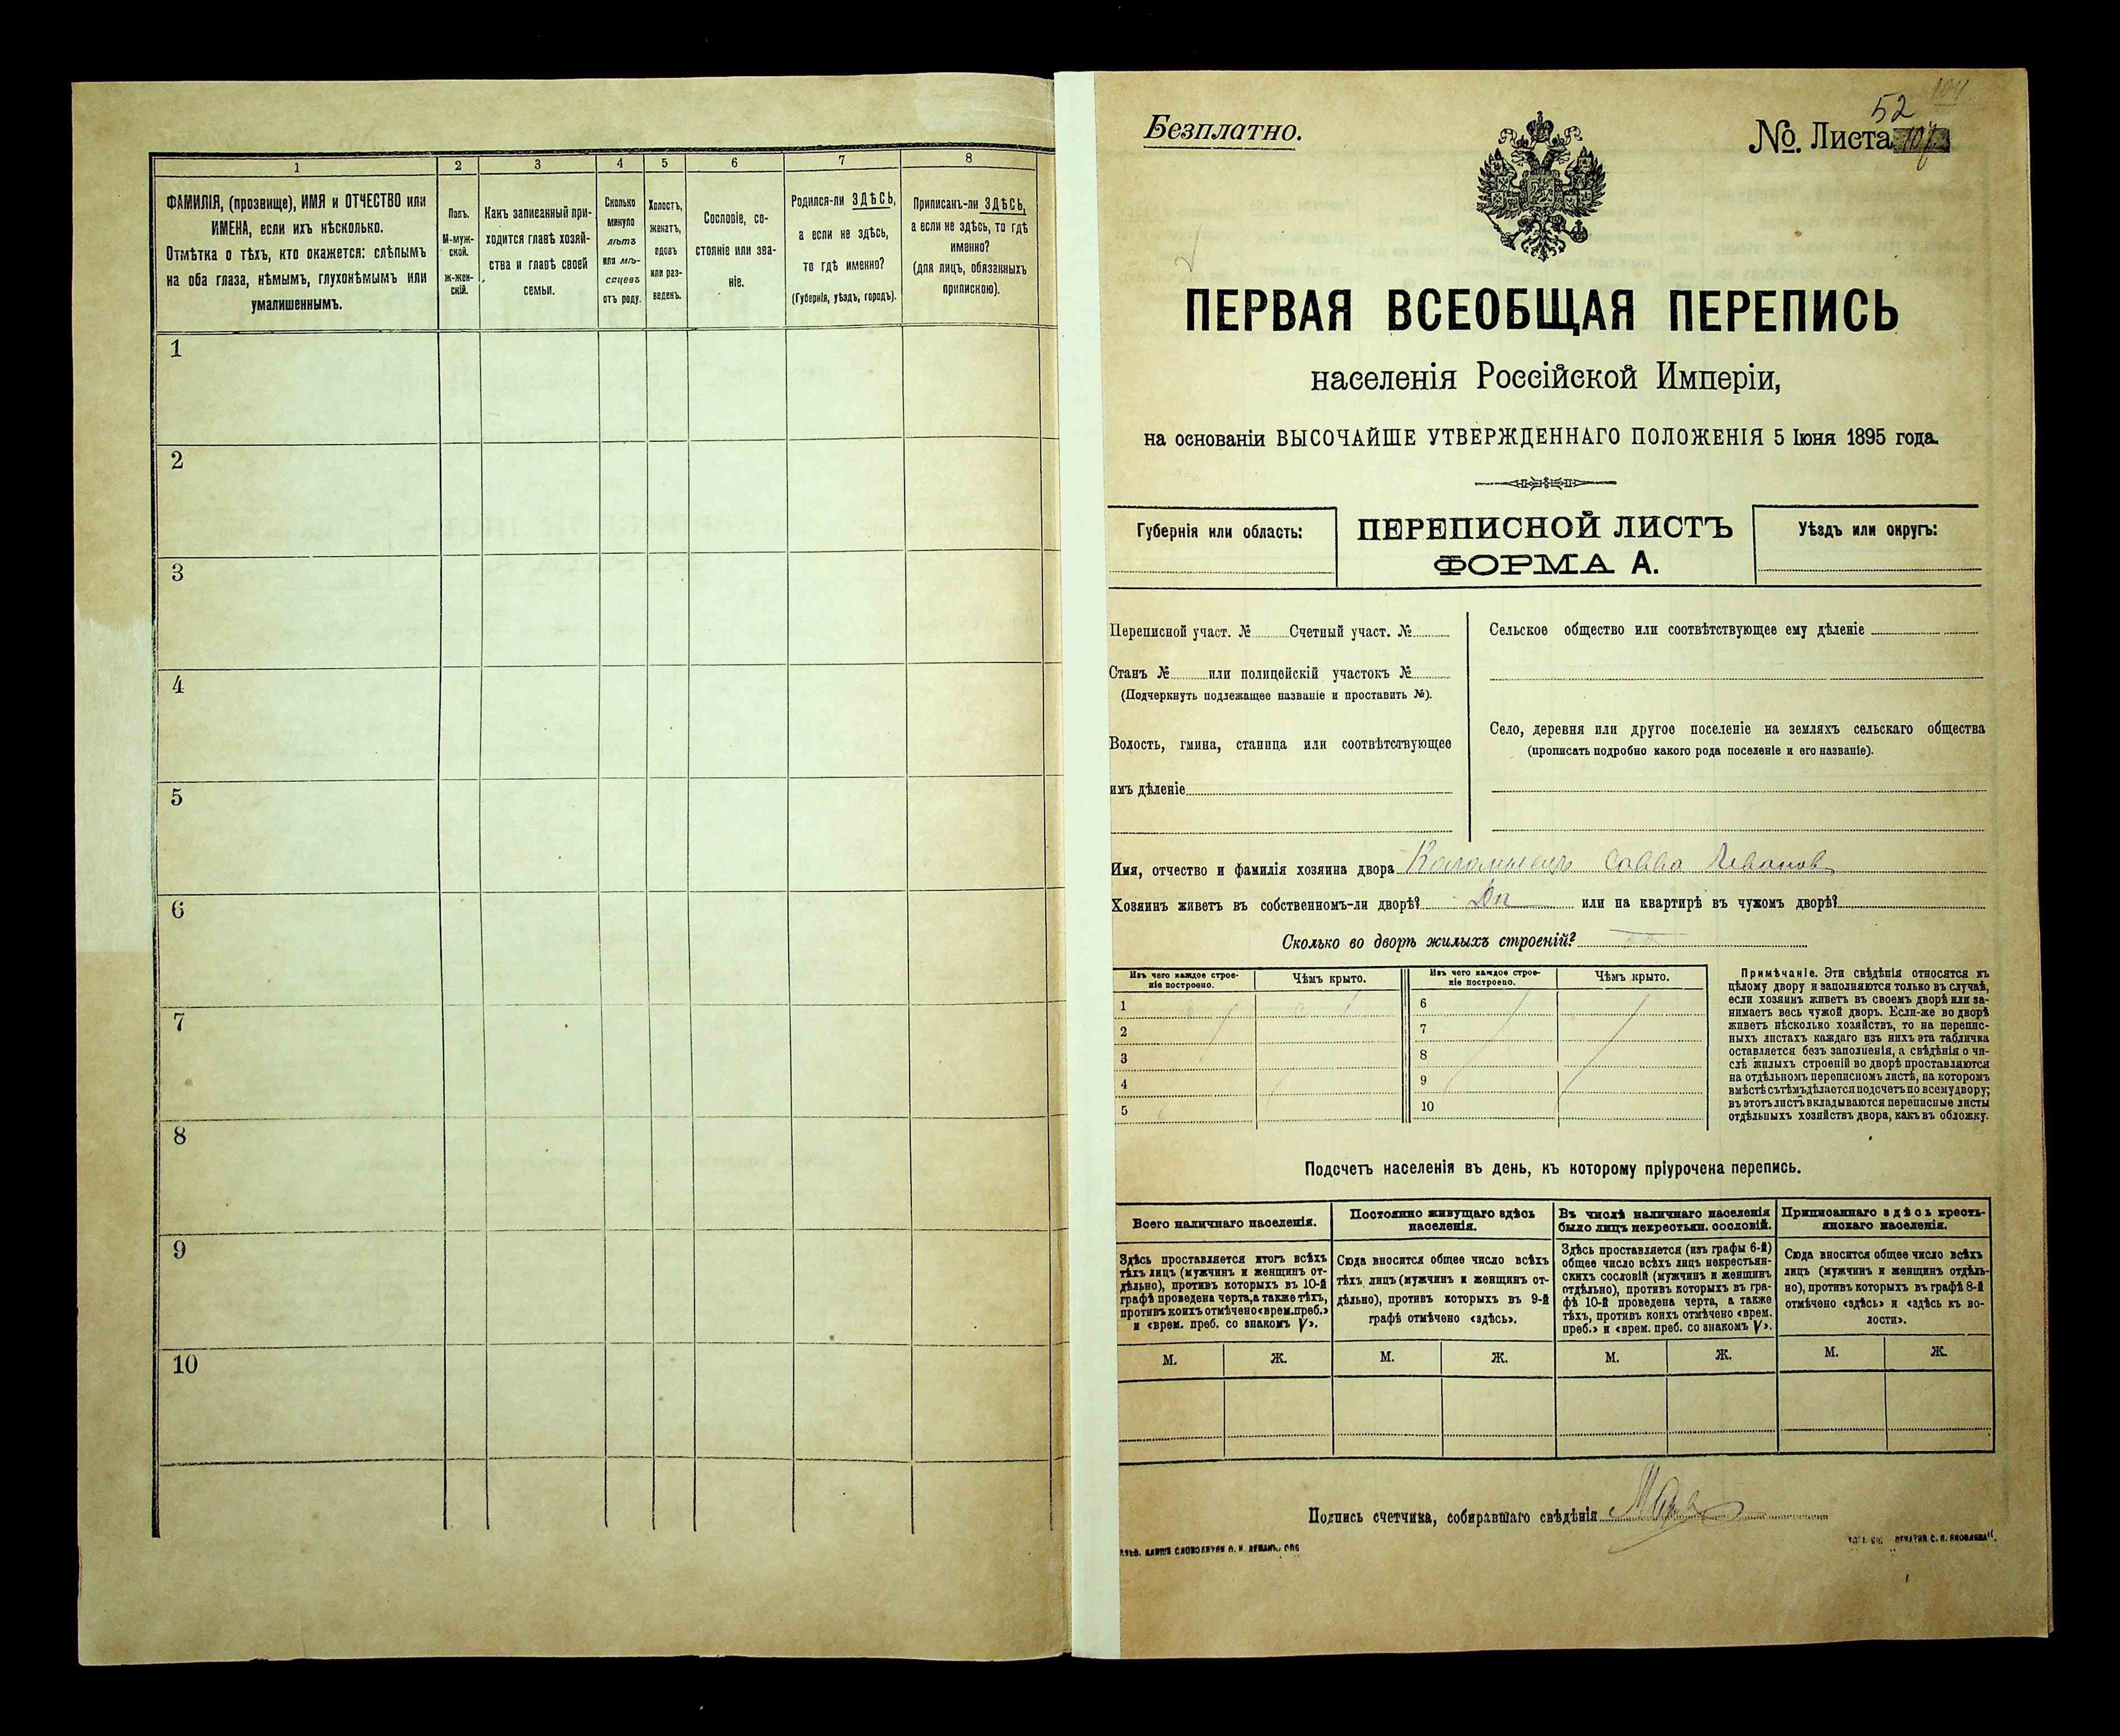 1
2
3
4
5
6
7
8
ФАМИЛІЯ, (прозвище), ИМЯ и ОТЧЕСТВО или
ИМЕНА, если ихъ нѣсколько.
Отмѣтка о тѣхъ, кто окажется: слѣпымъ
на оба глаза, нѣмымъ, глухонѣмымъ или
умалишеннымъ.
Полъ.
М-муж-
ской.
Ж-жен-
скій.
Какъ записанный при-
ходится главѣ хозяй-
ства и главѣ своей
семьи.
Сколько
минуло
лѣтъ
или мѣ-
сяцевъ
отъ роду.
Холостъ,
женатъ,
вдовъ
или раз-
веденъ.
Сословіе, со-
стояніе или зва-
ніе.
Родился-ли ЗДѢСЬ,
а если не здѣсь,
то гдѣ именно?
(Губернія, уѣздъ, городъ).
Приписанъ-ли ЗДѢСЬ,
а если не здѣсь, то гдѣ
именно?
(для лицъ, обязанныхъ
припискою).
1
2
3
4
5
6
7
8
9
10
Безплатно.
52
№. Листа
ПЕРВАЯ ВСЕОБЩАЯ ПЕРЕПИСЬ
населенія Россійской Имперіи,
на основаніи ВЫСОЧАЙШЕ УТВЕРЖДЕННАГО ПОЛОЖЕНІЯ 5 Іюня 1895 года.
Губернія или область:
ПЕРЕПИСНОЙ ЛИСТЪ
ФОРМА А.
Уѣздъ или округъ:
Переписной участ. № Счетный участ. №
Станъ № или полицейскій участокъ №
(Подчеркнуть подлежащее названіе и проставить №).
Волость, гмина, станица или соотвѣтствующее
имъ дѣленіе
Сельское общество или соотвѣтствующее ему дѣленіе
Село, деревня или другое поселеніе на земляхъ сельскаго общества
(прописать подробно какого рода поселеніе и его названіе).
Имя, отчество и фамилія хозяина двора Савва Иванов
Хозяинъ живетъ въ собственномъ-ли дворѣ? Да или на квартирѣ въ чужомъ дворѣ?
Сколько во дворѣ жилыхъ строеній?
Изъ чего каждое строе-
ніе построено.
Чѣмъ крыто.
Изъ чего каждое строе-
ніе построено.
Чѣмъ крыто.
1
2
3
4
5
6
7
8
9
10
Примѣчаніе. Эти свѣдѣнія относятся къ
цѣлому двору и заполняются только въ случаѣ,
если хозяинъ живетъ въ своемъ дворѣ или за-
нимаетъ весь чужой дворъ. Если-же во дворѣ
живетъ нѣсколько хозяйствъ, то на перепис-
ныхъ листахъ каждаго изъ нихъ эта табличка
оставляется безъ заполненія, а свѣдѣнія о чи-
слѣ жилыхъ строеній во дворѣ проставляются
на отдѣльномъ переписномъ листѣ, на которомъ
вмѣстѣ съ тѣмъ дѣлается подсчетъ по всему двору;
въ этотъ листъ вкладываются переписные листы
отдѣльныхъ хозяйствъ двора, какъ въ обложку.
Подсчетъ населенія въ день, къ которому пріурочена перепись.
Всего наличнаго населенія.
Постоянно живущаго здѣсь
населенія.
Въ числѣ наличнаго населенія
было лицъ некрестьян. сословій.
Приписаннаго здѣсь кресть-
янскаго населенія.
Здѣсь проставляется итогъ всѣхъ
тѣхъ лицъ (мужчинъ и женщинъ от-
дѣльно), противъ которыхъ въ 10-й
графѣ проведена черта, а также тѣхъ,
противъ коихъ отмѣчено «врем. преб.»
и «врем. преб. со знакомъ V».
Сюда вносится общее число всѣхъ
тѣхъ лицъ (мужчинъ и женщинъ от-
дѣльно), противъ которыхъ въ 9-й
графѣ отмѣчено «здѣсь».
Здѣсь проставляется (изъ графы 6-й)
общее число всѣхъ лицъ некрестьян-
скихъ сословій (мужчинъ и женщинъ
отдѣльно), противъ которыхъ въ гра-
фѣ 10-й проведена черта, а также
тѣхъ, противъ коихъ отмѣчено «врем.
преб.» и «врем. преб. со знакомъ V».
Сюда вносится общее число всѣхъ
лицъ (мужчинъ и женщинъ отдѣль-
но), противъ которыхъ въ графѣ 8-й
отмѣчено «здѣсь» и «здѣсь къ во-
лости».
М.
Ж.
М.
Ж.
М.
Ж.
М.
Ж.
Подпись счетчика, собиравшаго свѣдѣнія